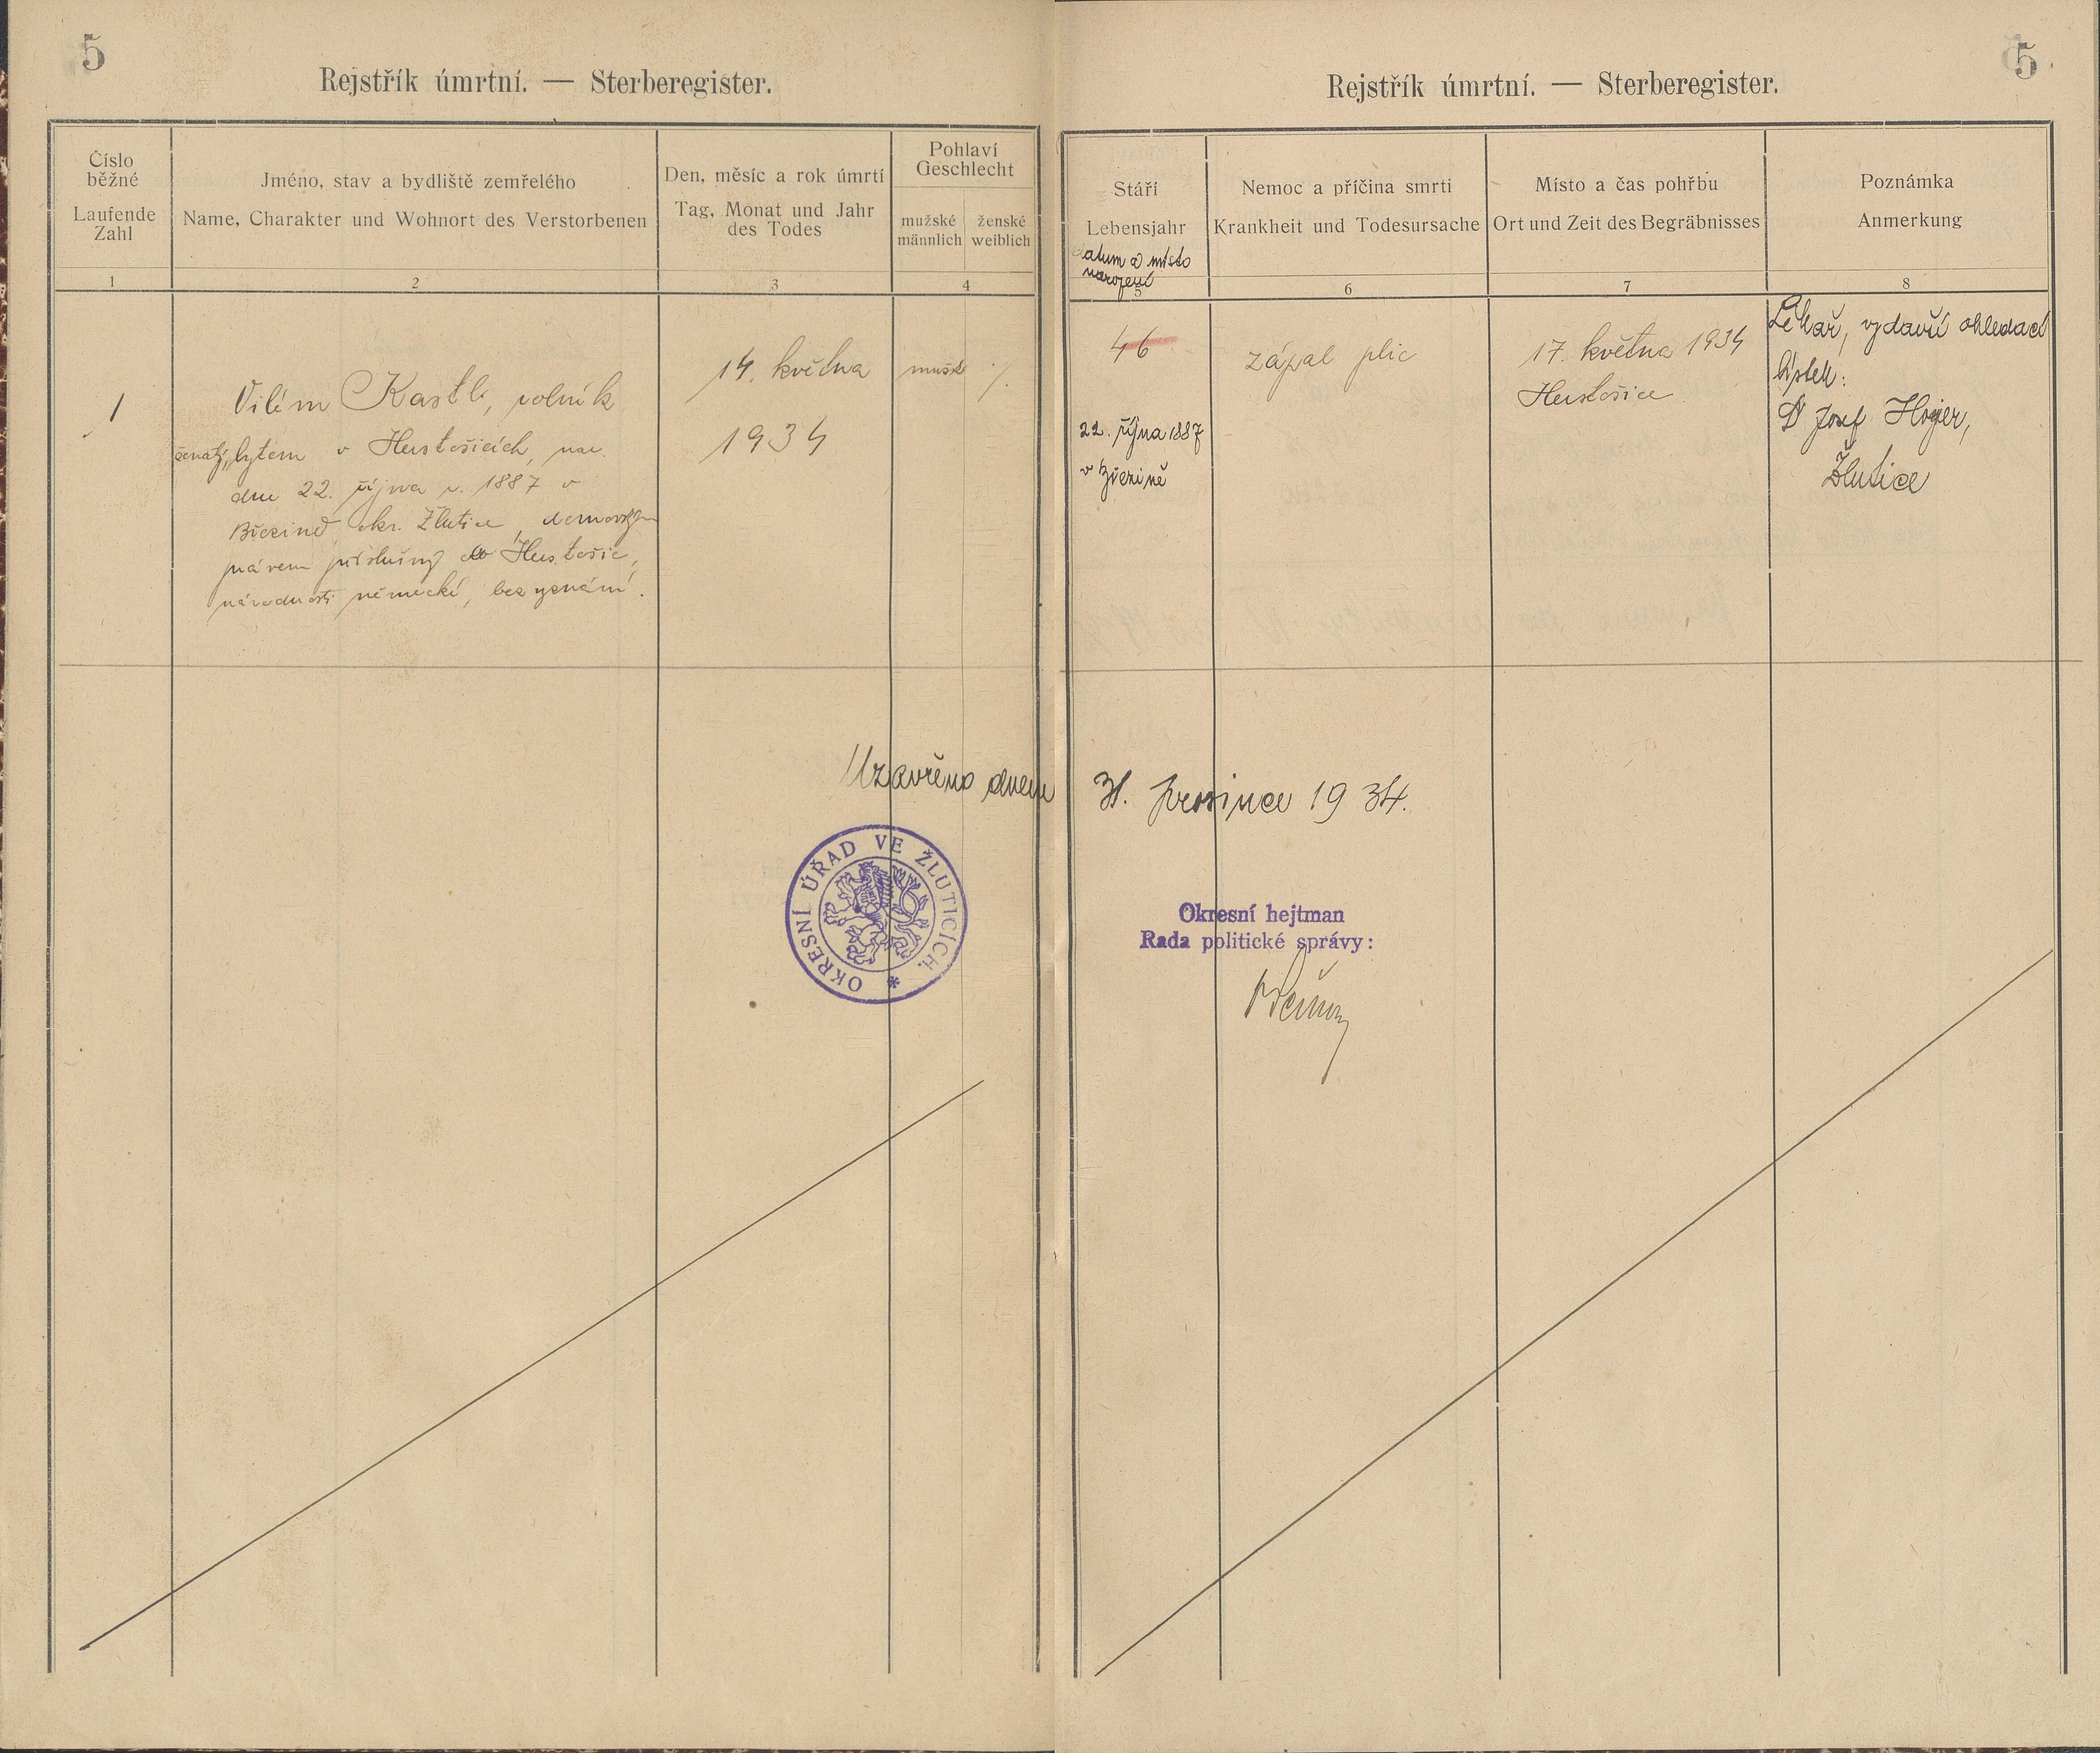 5
Rejstřík úmrtní. — Sterberegister.
Číslo běžné
Laufende Zahl
Jméno, stav a bydliště zemřelého
Name, Charakter und Wohnort des Verstorbenen
Den, měsíc a rok úmrtí
Tag, Monat und Jahr des Todes
Pohlaví
Geschlecht
mužské
männlich
ženské
weiblich
1
2
3
4
1
Vilém Kastl, rolník
ženatý, bytem v Hustošicích, nar.
dne 22. října r. 1887 v
Březině okr. Žlutice, domovským
právem příslušný do Hustošic,
národnosti německé, bez vyznání.
14. května
1934
mužské
%
Uzavřeno dnem
OKRESNÍ ÚŘAD VE ŽLUTICÍCH. *
5
Rejstřík úmrtní. — Sterberegister.
Stáří
Lebensjahr
datum a místo
narození
Nemoc a příčina smrti
Krankheit und Todesursache
Místo a čas pohřbu
Ort und Zeit des Begräbnisses
Poznámka
Anmerkung
5
6
7
8
46
22. října 1887
v Březině
zápal plic
17. května 1934
Hustošice
Lékař, vydavší ohledací
lístek:
Dr Josef Hojer,
Žlutice
31. prosince 1934.
Okresní hejtman
Rada politické správy: